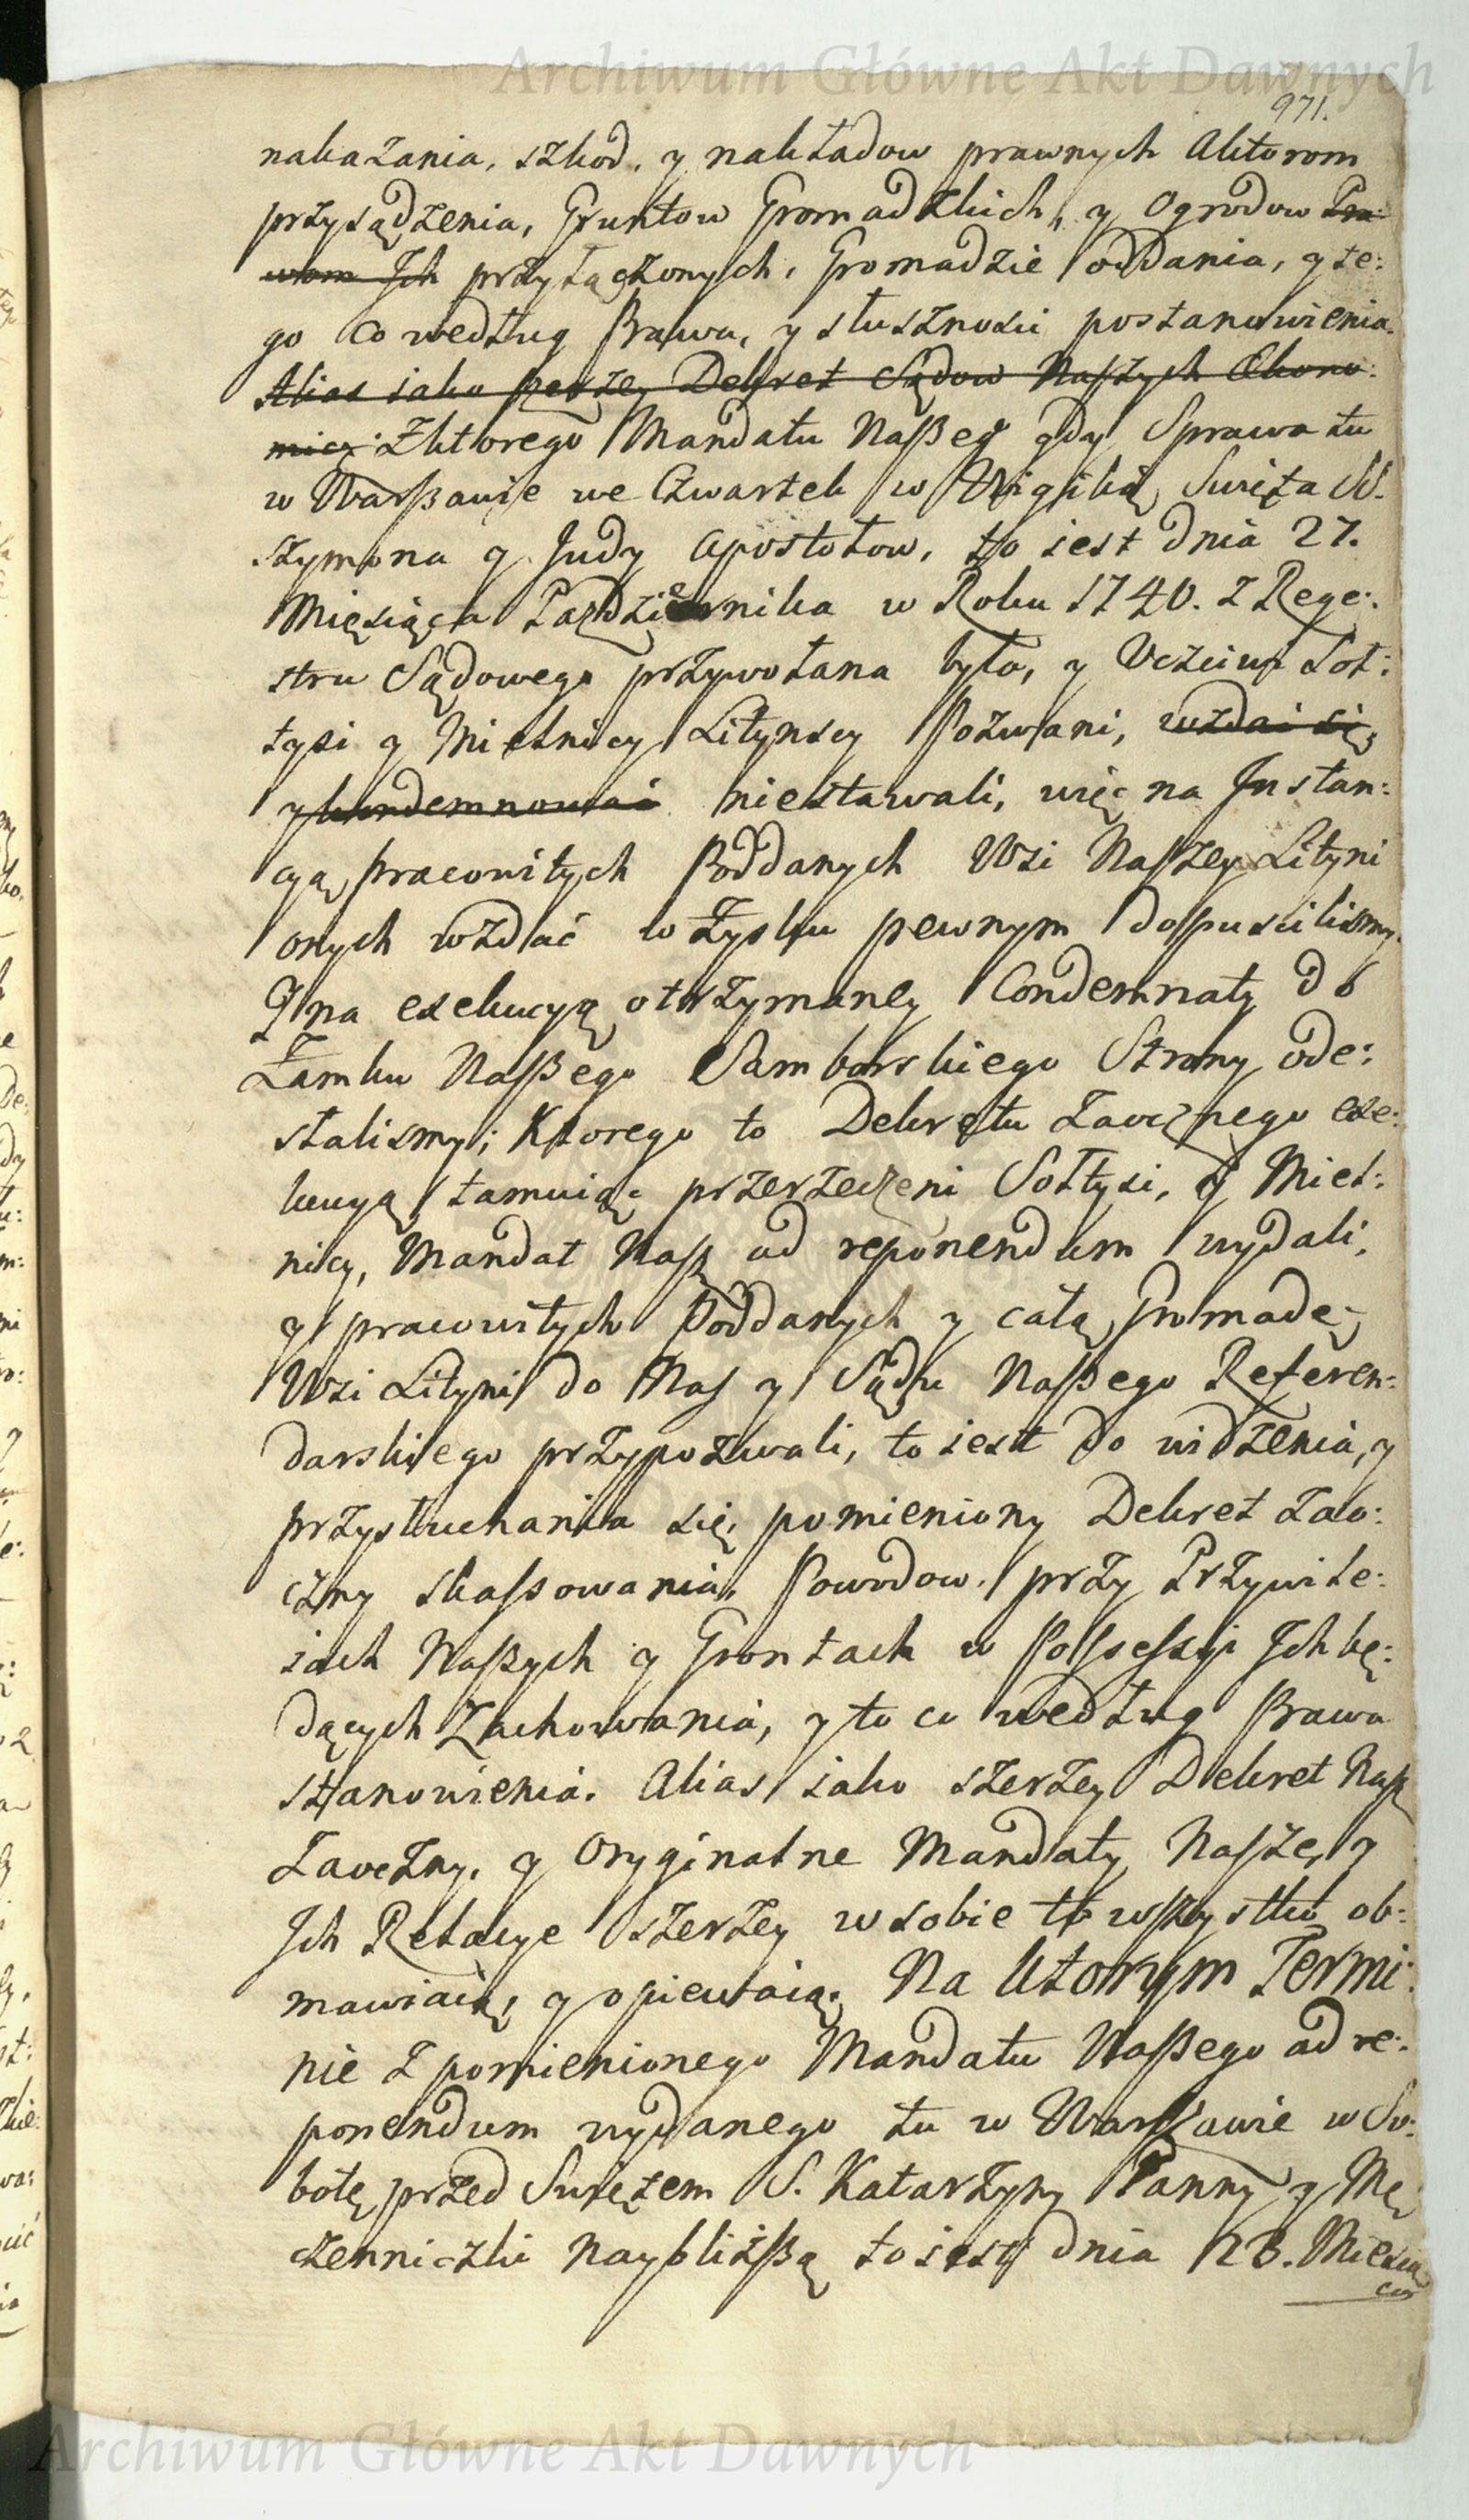 Archiwum Główne Akt Dawnych
971.
nakazania, szkod, y nakładow prawnych Aktorom
przysądzenia, Gruntow Gromadzkich, y Ogrodow Pra:
wom Ich przyłączonych, Gromadzie oddania, y te:
go co według Prawa, y słusznosci postanowienia.
Alias iako szerzey Dekret Sądow Naszych Ekono:
micz: Zktorego Mandatu Naszeg gdy Sprawa tu
w Warszawie we Czwartek w Wigilią Swięta SS.
Szymona y Judy Apostołow, to iest dnia 27.
Miesiąca Pazdziernika w Roku 1740. z Rege:
stru Sądowego przywołana była, y Uczciwi Soł:
tysi y Mielnicy Litynscy Pozwani, wzdai się
y kondemnować niestawali, więc na Instan:
cyą pracowitych Poddanych Wsi Naszey Lityni
onych wzdać w Zysku pewnym dopuscilismy.
I na exekucyą otrzymaney Condemnaty do
Zamku Naszego Samborskiego Strony ode:
słalismy; Ktorego to Dekretu Zaocznego exe:
kucyą tamuiąc przerzeczeni Sołtysi, y Miel:
nicy, Mandat Nasz ad reponendum wydali,
y pracowitych Poddanych y całą Gromadę
Wsi Lityni do Nas y Sądu Naszego Referen:
darskiego przypozwali, to iest do widzenia, y
przysłuchania się, pomieniony Dekret Zao:
czny skassowania, Powodow, przy Przywile:
iach Naszych y Grontach w Possessyi Ich bę:
dących Zachowania, y to co według Prawa
stanowienia. Alias iako szerzey Dekret Nasz
Zaoczny, y Oryginalne Mandaty Nasze, y
Ich Relacye szerzey w sobie to wszystko ob:
mawiaią, y opiewaią. Na Ktorym Termi:
nie z pomienionego Mandatu Naszego ad re:
ponendum wydanego tu w Warszawie w So:
botę przed Swiętem S. Katarzyny Panny y Mę
czenniczki nayblizszą to iest dnia 23. Miesią
ca
Archiwum Główne Akt Dawnych